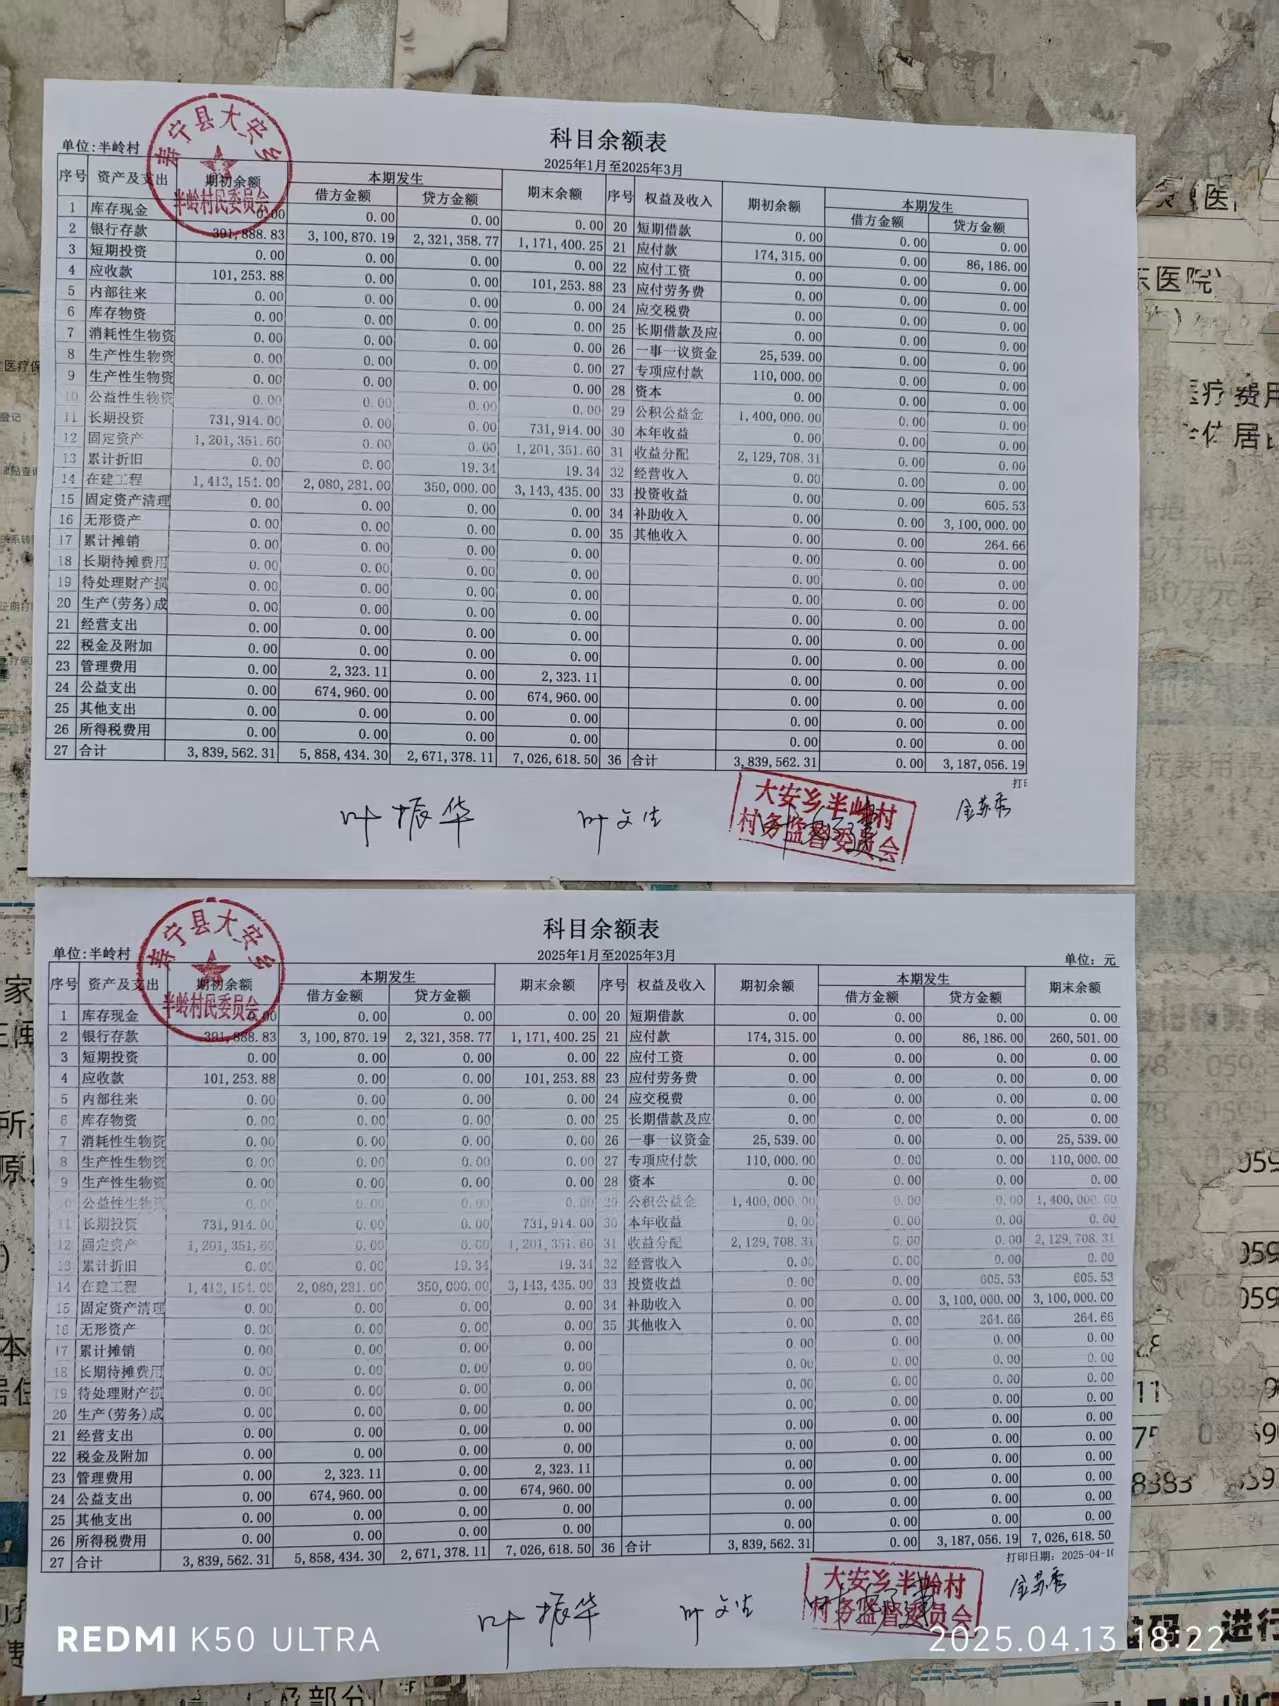 寿宁县大安乡
半岭村民委员会
科目余额表
单位:半岭村
2025年1月至2025年3月
序号 资产及支出 期初余额 本期发生 期末余额 序号 权益及收入 期初余额 本期发生
借方金额 贷方金额 借方金额 贷方金额
1 库存现金 0.00 0.00 0.00 0.00 20 短期借款 0.00 0.00 0.00
2 银行存款 391,888.83 3,100,870.19 2,321,358.77 1,171,400.25 21 应付款 174,315.00 0.00 86,186.00
3 短期投资 0.00 0.00 0.00 0.00 22 应付工资 0.00 0.00 0.00
4 应收款 101,253.88 0.00 0.00 101,253.88 23 应付劳务费 0.00 0.00 0.00
5 内部往来 0.00 0.00 0.00 0.00 24 应交税费 0.00 0.00 0.00
6 库存物资 0.00 0.00 0.00 0.00 25 长期借款及应 0.00 0.00 0.00
7 消耗性生物资 0.00 0.00 0.00 0.00 26 一事一议资金 25,539.00 0.00 0.00
8 生产性生物资 0.00 0.00 0.00 0.00 27 专项应付款 110,000.00 0.00 0.00
9 生产性生物资 0.00 0.00 0.00 0.00 28 资本 0.00 0.00 0.00
10 公益性生物资 0.00 0.00 0.00 0.00 29 公积公益金 1,400,000.00 0.00 0.00
11 长期投资 731,914.00 0.00 0.00 731,914.00 30 本年收益 0.00 0.00 0.00
12 固定资产 1,201,351.60 0.00 0.00 1,201,351.60 31 收益分配 2,129,708.31 0.00 0.00
13 累计折旧 0.00 0.00 19.34 19.34 32 经营收入 0.00 0.00 0.00
14 在建工程 1,413,154.00 2,080,281.00 350,000.00 3,143,435.00 33 投资收益 0.00 0.00 605.53
15 固定资产清理 0.00 0.00 0.00 0.00 34 补助收入 0.00 0.00 3,100,000.00
16 无形资产 0.00 0.00 0.00 0.00 35 其他收入 0.00 0.00 264.66
17 累计摊销 0.00 0.00 0.00 0.00 0.00 0.00 0.00
18 长期待摊费用 0.00 0.00 0.00 0.00 0.00 0.00 0.00
19 待处理财产损 0.00 0.00 0.00 0.00 0.00 0.00 0.00
20 生产(劳务)成 0.00 0.00 0.00 0.00 0.00 0.00 0.00
21 经营支出 0.00 0.00 0.00 0.00 0.00 0.00 0.00
22 税金及附加 0.00 0.00 0.00 0.00 0.00 0.00 0.00
23 管理费用 0.00 2,323.11 0.00 2,323.11 0.00 0.00 0.00
24 公益支出 0.00 674,960.00 0.00 674,960.00 0.00 0.00 0.00
25 其他支出 0.00 0.00 0.00 0.00 0.00 0.00 0.00
26 所得税费用 0.00 0.00 0.00 0.00 0.00 0.00 0.00
27 合计 3,839,562.31 5,858,434.30 2,671,378.11 7,026,618.50 36 合计 3,839,562.31 0.00 3,187,056.19
叶振华 叶文生 金苏秀
大安乡半岭村
村务监督委员会
寿宁县大安乡
半岭村民委员会
科目余额表
单位:半岭村 2025年1月至2025年3月 单位:元
序号 资产及支出 期初余额 本期发生 期末余额 序号 权益及收入 期初余额 本期发生 期末余额
借方金额 贷方金额 借方金额 贷方金额
1 库存现金 0.00 0.00 0.00 0.00 20 短期借款 0.00 0.00 0.00 0.00
2 银行存款 391,888.83 3,100,870.19 2,321,358.77 1,171,400.25 21 应付款 174,315.00 0.00 86,186.00 260,501.00
3 短期投资 0.00 0.00 0.00 0.00 22 应付工资 0.00 0.00 0.00 0.00
4 应收款 101,253.88 0.00 0.00 101,253.88 23 应付劳务费 0.00 0.00 0.00 0.00
5 内部往来 0.00 0.00 0.00 0.00 24 应交税费 0.00 0.00 0.00 0.00
6 库存物资 0.00 0.00 0.00 0.00 25 长期借款及应 0.00 0.00 0.00 0.00
7 消耗性生物资 0.00 0.00 0.00 0.00 26 一事一议资金 25,539.00 0.00 0.00 25,539.00
8 生产性生物资 0.00 0.00 0.00 0.00 27 专项应付款 110,000.00 0.00 0.00 110,000.00
9 生产性生物资 0.00 0.00 0.00 0.00 28 资本 0.00 0.00 0.00 0.00
10 公益性生物资 0.00 0.00 0.00 0.00 29 公积公益金 1,400,000.00 0.00 0.00 1,400,000.00
11 长期投资 731,914.00 0.00 0.00 731,914.00 30 本年收益 0.00 0.00 0.00 0.00
12 固定资产 1,201,351.60 0.00 0.00 1,201,351.60 31 收益分配 2,129,708.31 0.00 0.00 2,129,708.31
13 累计折旧 0.00 0.00 19.34 19.34 32 经营收入 0.00 0.00 0.00 0.00
14 在建工程 1,413,154.00 2,080,281.00 350,000.00 3,143,435.00 33 投资收益 0.00 0.00 605.53 605.53
15 固定资产清理 0.00 0.00 0.00 0.00 34 补助收入 0.00 0.00 3,100,000.00 3,100,000.00
16 无形资产 0.00 0.00 0.00 0.00 35 其他收入 0.00 0.00 264.66 264.66
17 累计摊销 0.00 0.00 0.00 0.00 0.00 0.00 0.00 0.00
18 长期待摊费用 0.00 0.00 0.00 0.00 0.00 0.00 0.00 0.00
19 待处理财产损 0.00 0.00 0.00 0.00 0.00 0.00 0.00 0.00
20 生产(劳务)成 0.00 0.00 0.00 0.00 0.00 0.00 0.00 0.00
21 经营支出 0.00 0.00 0.00 0.00 0.00 0.00 0.00 0.00
22 税金及附加 0.00 0.00 0.00 0.00 0.00 0.00 0.00 0.00
23 管理费用 0.00 2,323.11 0.00 2,323.11 0.00 0.00 0.00 0.00
24 公益支出 0.00 674,960.00 0.00 674,960.00 0.00 0.00 0.00 0.00
25 其他支出 0.00 0.00 0.00 0.00 0.00 0.00 0.00 0.00
26 所得税费用 0.00 0.00 0.00 0.00 0.00 0.00 0.00 0.00
27 合计 3,839,562.31 5,858,434.30 2,671,378.11 7,026,618.50 36 合计 3,839,562.31 0.00 3,187,056.19 7,026,618.50
打印日期: 2025-04-1
叶振华 叶文生 金苏秀
大安乡半岭村
村务监督委员会
REDMI K50 ULTRA
2025.04.13 18:22